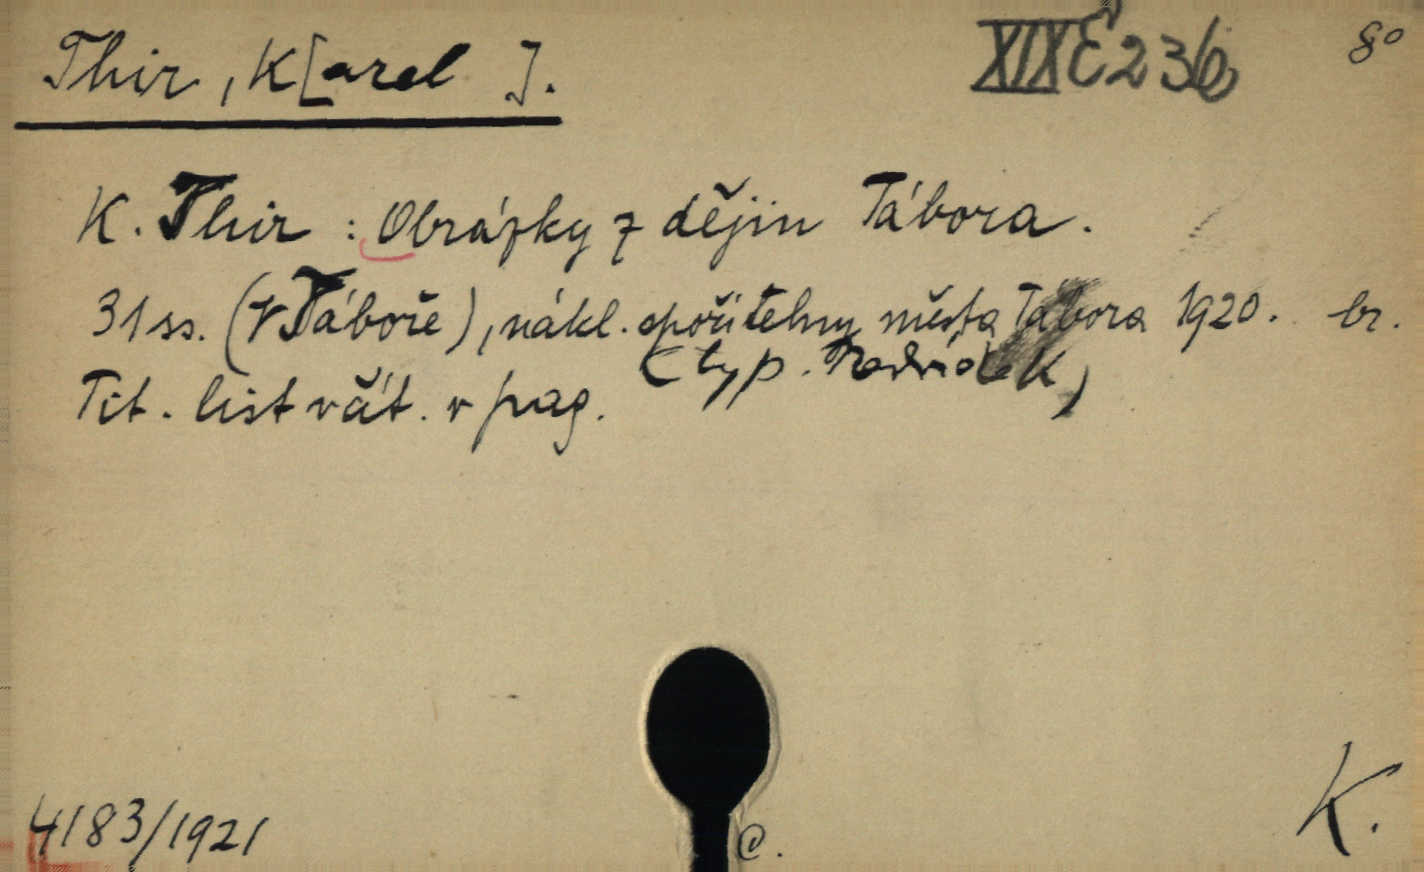 Thir, K[arel ]. XIX E 236 8°
K. Thir : Obrázky z dějin Tábora.
31 ss. (V Táboře), nákl. spořitelny města Tábora 1920. br.
(typ.
Tit. list včít. v pag.
4183/1921 C. K.